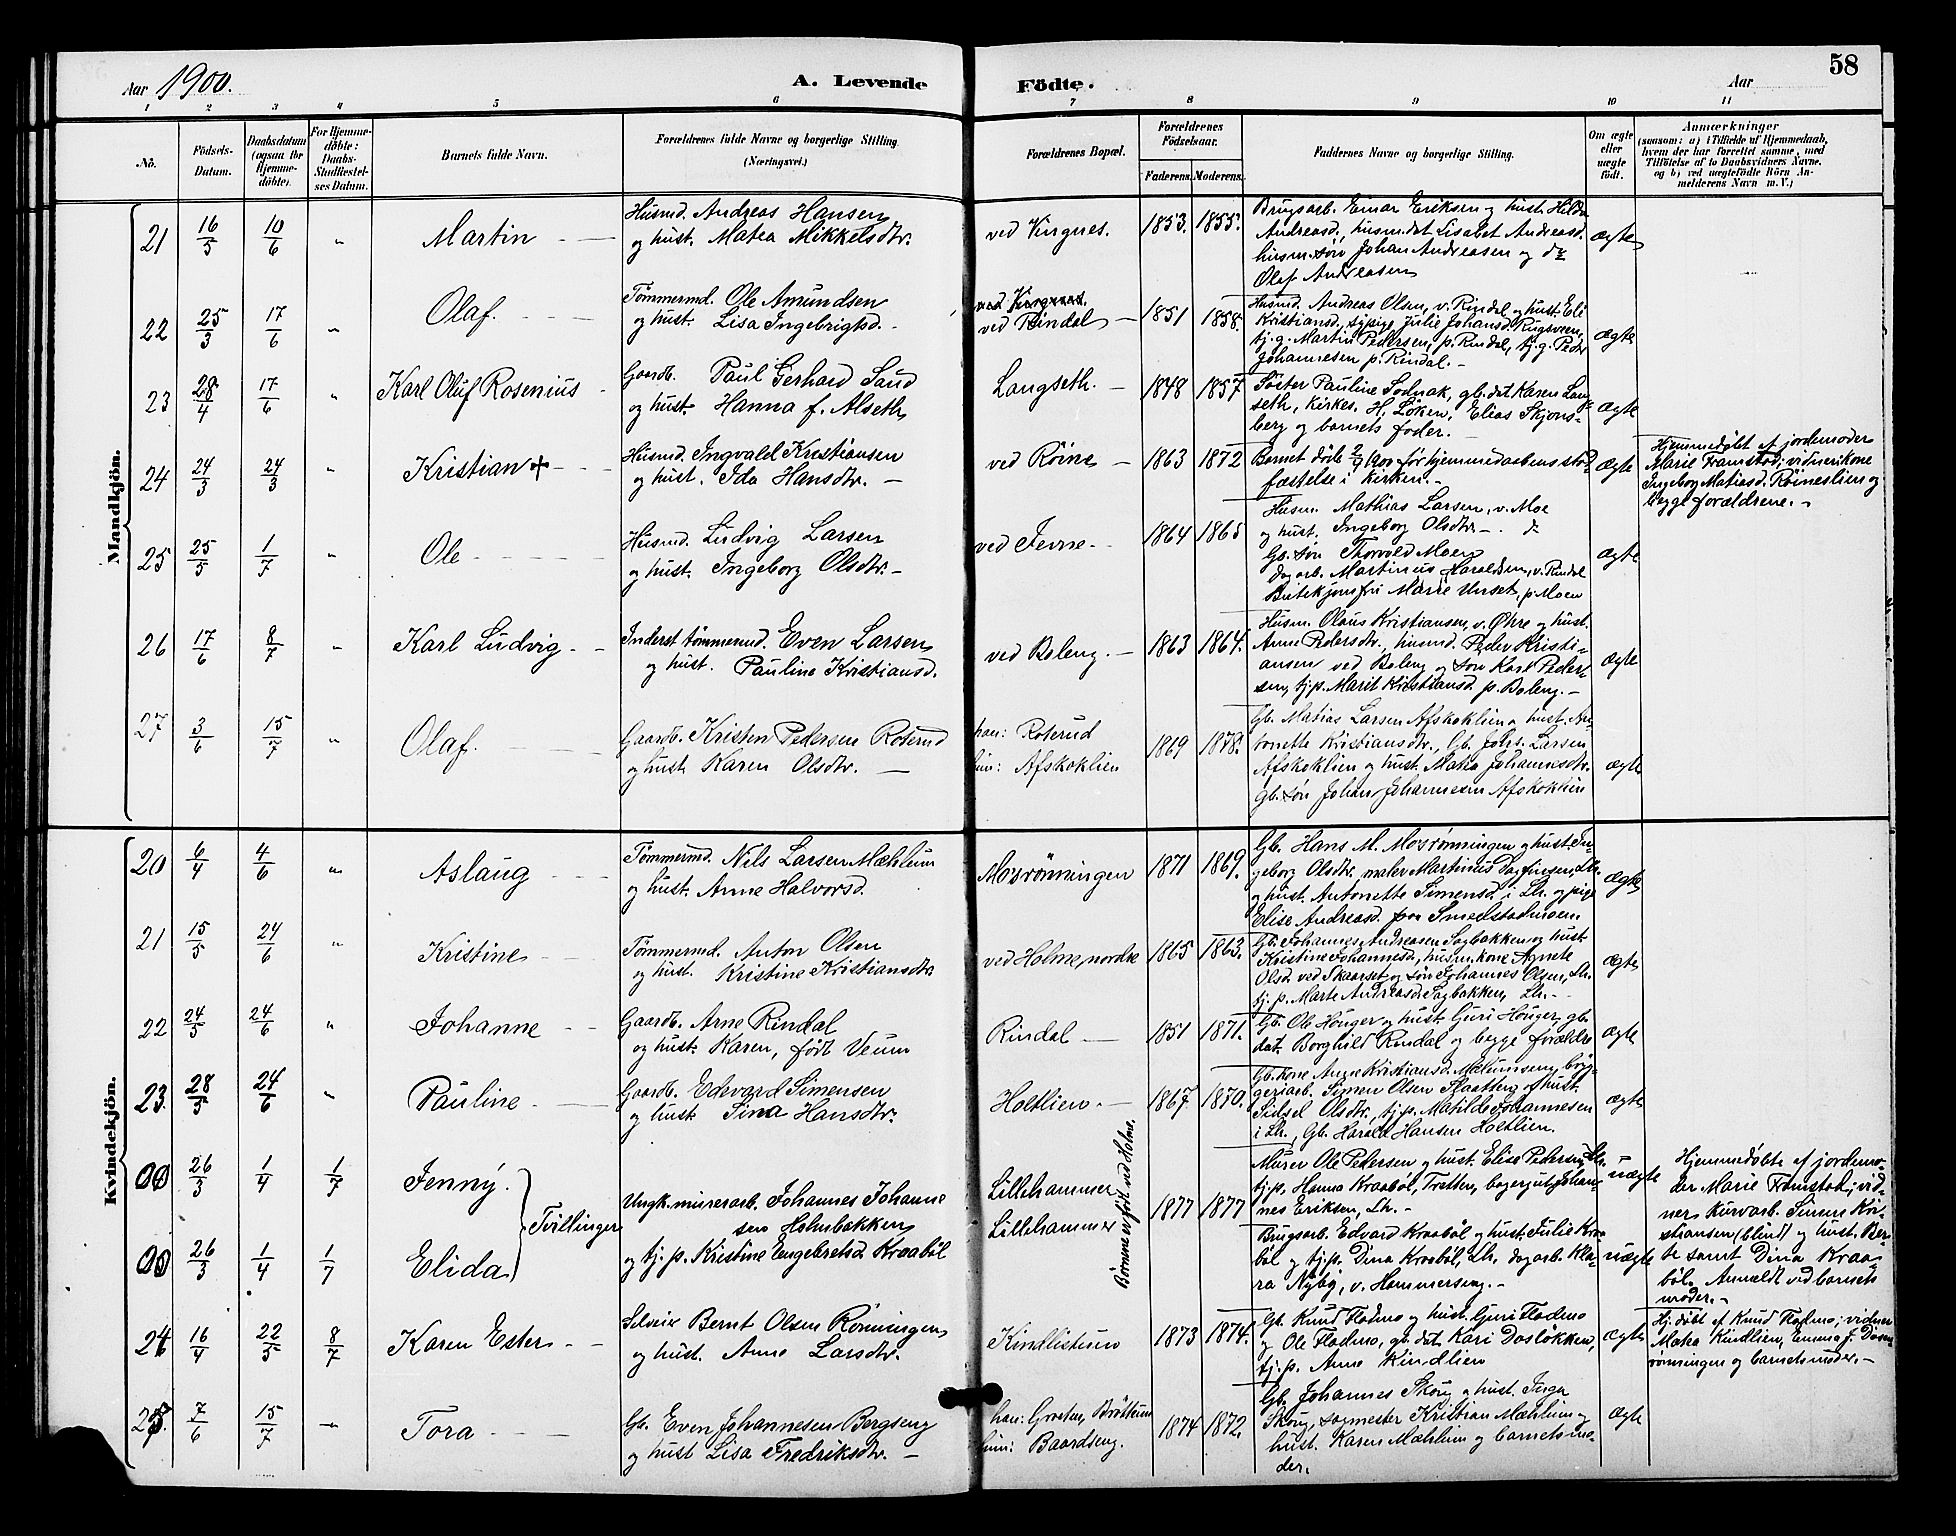 58
Aar 1900.
A. Levende Födte.
Aar
1 2 3 4 5 6 7 8 9 10 11
No.
Födsels-
Datum.
Daabsdatum
(ogsaa for
Hjemme-
döbte).
For Hjemme-
döbte:
Daabs-
Stadfæstel-
ses Datum.
Barnets fulde Navn.
Forældrenes fulde Navne og borgerlige Stilling
(Næringsvei.)
Forældrenes Bopæl.
Forældrenes
Födselsaar.
Faderens. Moderens.
Faddernes Navne og borgerlige Stilling.
Om ægte
eller
uægte
födt.
Anmærkninger
(saasom: a) i Tilfælde af Hjemmedaab,
hvem der har forrettet samme, med
Tilföielse af to Daabsvidners Navne,
og b) ved uægtefödte Börn An-
melderens Navn m. V.)
Mandkjön.
21 16/5 10/6 " Martin
Husmd. Andreas Hansen
og hust. Matea Mikkelsdtr.
ved Vingnes. 1853. 1855.
Brugsarb. Einar Eriksen og hust. Hilda
Andreasd., husm.dat. Lisabet Andreasd.
husm. søn Johan Andreasen og do
Olef Andreasen
ægte
22 25/3 17/6 " Olaf.
Tømmermd. Ole Amundsen
og hust. Lisa Ingebrigtsd.
ved Rindal 1851 1858.
Husmd. Andreas Olsen, v. Rindal og hust. Eli
Kristiansd., sypige Julie Johansd. Rugsveen,
tj.g. Martin Pedersen, p. Rindal, tj.g. Peder
Johannesen p. Rindal.
ægte
23 28/4 17/6 " Karl Oluf Rosenius
Gaardb. Paul Gerhard Saud
og hust. Hanna f. Alseth
Langseth. 1848 1857
Søster Pauline Sodnak, gb.dat. Karen Lang-
seth, Kirkes. H. Løken, Elias Skjons-
berg og barnets fader.
ægte
24 24/3 24/3 Kristian +
Husmd. Ingvald Kristiansen
og hust. Ida Hansdtr.
ved Röine 1863 1872
Barnet døde 2/9 1900 før hjemmedaabens stad-
fæstelse i kirken.
ægte
Hjemmedøbt af jordemoder
Marie Framstad; vidner: kone
Ingeborg Matiasd. Röineslien og
begge forældrene.
25 25/5 1/7 " Ole
Husmd. Ludvig Larsen
og hust. Ingeborg Olsdtr.
ved Jevne. 1864 1865
Husm. Mathias Larsen, v. Moe
og hust. Ingeborg Olsdtr. do
Gb. søn Thorvald Moen
dagarb. Martinius Haraldsen, v. Rindal
Marie Urset, p. Moen
ægte
26 17/6 8/7 " Karl Ludvig
Inderst tømmermd. Even Larsen
og hust. Pauline Kristiansd.
ved Boleng. 1863 1864.
Husm. Olaus Kristiansen, v. Øhre og hust.
Anne Pedersdtr., husmd. Peder Kristi-
ansen ved Boleng og søn Karl Peder-
sen, tj.p. Marit Kristiansd. p. Boleng.
ægte
27 3/6 15/7 " Olaf.
Gaardb. Kristen Pedersen Roterud
og hust. Karen Olsdtr.
han: Roterud
hun: Afskoklien
1869 1878.
Gb. Matias Larsen Afskoklien og hust. An-
tonette Kristiansdtr., Gb. Johs. Larsen
Afskoklien og hust. Matea Johannesdtr.
gb. søn Johan Johannesen Afskoklien
ægte
Kvindekjön.
20 6/4 4/6 " Aslaug
Tømmermd. Nils Larsen Mæhlum
og hust. Anne Halvorsd.
Mosrønningen 1871 1869.
Gb. Hans M. Mosrønningen og hust. In-
geborg Olsdtr., maler Martinius Dagfinsen, Lh.
og hust. Antonette Simensd. i Lh. og pige
Elise Andreasd. paa Smedstadmoen.
ægte
21 15/5 24/6 " Kristine
Tømmermd. Anton Olsen
og hust. Kristine Kristiansdtr.
ved Holme, nordre 1865 1863.
Gb. Johannes Andreasen Sagbakken og hust.
Kristine Johannesd., husm.kone Agnete
Olsd. ved Skaarset og søn Johannes Olsen, Lh.
tj.p. Marte Andreasd. Sagbakken, Lh.
ægte
22 24/5 24/6 " Johanne
Gaardb. Arne Rindal
og hust. Karen, født Veum
Rindal 1851 1871.
Gb. Ole Houger og hust. Guri Houger, gb.
dat. Borghild Rindal og begge forældre
ægte
23. 28/5 24/6 " Pauline
Gaardb. Edevard Simensen
og hust. Sina Hansdtr.
Holtlien. 1867. 1870.
Gb. kone Anne Kristiansd. bryg-
geriarb. Simen Olsen Slaatberg og hust.
Sidsel Olsdtr., tj.p. Matilde Johannesen
i Lh., Gb. Harald Hansen Holtlien.
ægte
26/3 1/4 1/7 Jenny.
Tvillinger
Ungk. murerarb. Johannes Johanne-
sen Holmbakken
og tj.p. Kristine Engebretsd. Kraabøl
Lillehammer
Lillehammer
Børnene er født ved Holme.
1877 1877
Murer Ole Pedersen og hust. Elise Pedersen, Lh.
tj.p. Hanna Kraabøl, Tretten, bagergut Johan-
nes Eriksen, Lh.
uægte
Hjemmedøbte af jordemo-
der Marie Framstad; vid-
ner: kurvarb. Simen Kri-
stiansen (blind) og hust. Ber-
te samt Dina Kraa-
bøl. Anmeldt ved barnets
moder.
26/3 1/4 1/7 Elida
Brugsarb. Edvard Kraabøl og hust. Julie Kraa-
bøl og tj.p. Dina Kraabøl, Lh. dagarb. Kla-
ra Nyby, v. Hammerseng.
uægte
24 16/4 22/5 8/7 Karen Ester
Selveier Bernt Olsen Rønningen
og hust. Anne Larsdtr.
Kindlistuen 1873 1874.
Gb. Knud Fladmo og hust. Guri Fladmo
og Ole Fladmo, gb.dat. Kari Dasløkken,
tj.p. Anne Kindlien
ægte
Hj.døbt af Knud Fladmo; vidner
Matea Kindlien, Emma J. Dosen-
rønningen og barnets moder.
25. 7/6 15/7 " Tora
Gb. Even Johannesen Bergseng
og hust. Lisa Fredriksdtr.
han: Grooten, Brøttum
hun: Baardseng.
1874 1872.
Gb. Johannes Skoug og hust. Inga
Skoug, sagmester Kristian Mæhlum og
hust. Karen Mæhlum og barnets mo-
der.
ægte